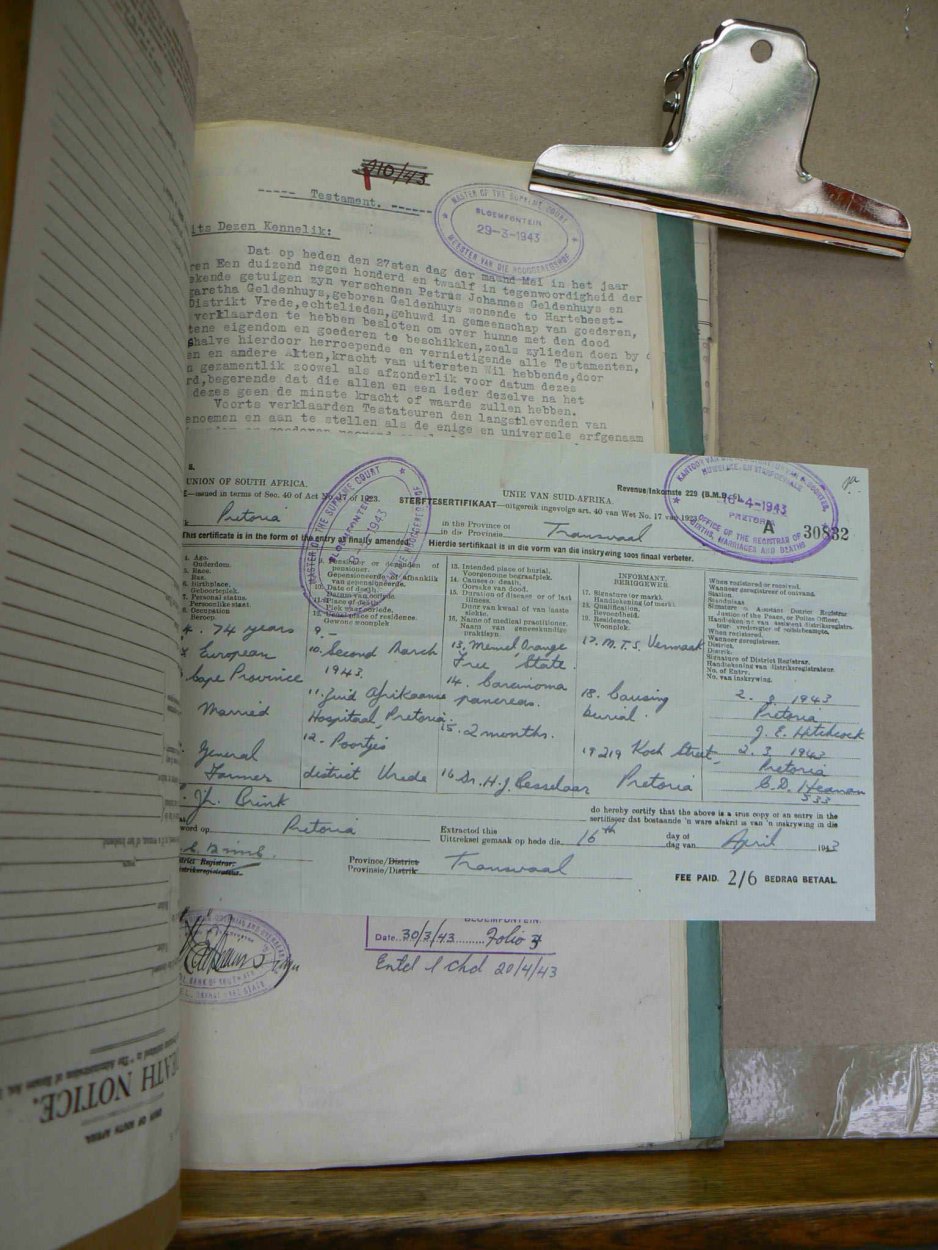 310/43
----- Testament. -----
its Dezen Kennelik:
MASTER OF THE SUPREME COURT
BLOEMFONTEIN
29-3-1943
MEESTER VAN DIE HOOGGEREGSHOF
Dat op heden den 27sten dag der maand Mei in het jaar
ren Een duizend negen honderd en twaalf in tegenwoordigheid der
ekende getuigen zyn verschenen Petrus Johannes Geldenhuys en
garetha Geldenhuys,geboren Geldenhuys wonende te Hartebeest-
Distrikt Vrede,echtelieden,gehuwd in gemeenschap van goederen,
verklaarden te hebben besloten om over hunne met den dood
tene eigendom en goederen te beschikken,zoals zylieden doen by
shalve hierdoor herroepende en vernietigende alle Testamenten,
en en andere Akten,kracht van uitersten Wil hebbende,door
n gezamentlik zoowel als afzonderlik voor datum dezes
rd,begerende dat die allen en een ieder dezelve na het
dezes geen de minste kracht of waarde zullen hebben.
Voorts verklaarden Testateuren den langstlevenden van
enoemen en aan te stellen als de enige en universele erfgenaam
UNION OF SOUTH AFRICA.
UNIE VAN SUID-AFRIKA.
Revenue/Inkomste 229 (B.M.D. 6).
E—issued in terms of Sec. 40 of Act No. 17 of 1923.
STERFTESERTIFIKAAT—uitgereik ingevolge art. 40 van Wet No. 17 van 1923
16-4-1943
PRETORIA
OFFICE OF THE REGISTRAR OF
BIRTHS, MARRIAGES AND DEATHS
A 30832
MASTER OF THE SUPREME COURT
BLOEMFONTEIN
Pretoria
in the Province of
in die Provinsie
Transvaal
This certificate is in the form of the entry as finally amended.
Hierdie sertifikaat is in die vorm van die inskrywing soos finaal verbeter.
4. Age.
Ouderdom.
5. Race.
Ras.
6. Birthplace.
Geboorteplek.
7. Personal status.
Persoonlike staat.
8. Occupation
Beroep.
9. Pensioner or dependent of
pensioner.
Gepensioeneerde of afhanklik
van gepensioeneerde.
10. Date of death.
Datum van oorlede.
11. Place of death.
Plek waar oorlede.
12. Usual place of residence.
Gewone woonplek
13. Intended place of burial.
Voorgenome begraafplek.
14. Causes of death.
Oorsake van dood.
15. Duration of disease or of last
illness.
Duur van kwaal of van laaste
siekte.
16. Name of medical practitioner.
Naam van geneeskundige
praktisyn.
INFORMANT.
BERIGGEWER.
17. Signature (or mark).
Handtekening (of merk)
18. Qualification.
Bevoegdheid.
19. Residence.
Woonplek.
When registered or received.
Wanneer geregistreer of ontvang.
Station.
Standplaas
Signature of Assistant District Registrar,
Justice of the Peace, or Police Officer.
When registered.
Wanneer geregistreer.
District.
Distrik.
Signature of District Registrar.
Handtekening van distriksregistrateur.
No. of Entry.
No. van inskrywing.
4. 74 years
European
Cape Province
Married
General
Farmer
9. —
10. Second March
1943.
11. Zuid Afrikaanse
Hospitaal Pretoria.
12. Poortjie
district Vrede
13. Memel Orange
Free State
14. Carcinoma
pancreas.
15. 2 months.
16 Dr. H. J. Besselaar
17. M. T. S. Vermaak
18. Causing
burial.
19 219 Koch Street
Pretoria
2. 3 1943
Pretoria
J. E. Hitchcock
2. 3. 1943
Pretoria
533
J.L. Brink
do hereby certify that the above is a true copy of an entry in the
sertifiseer dat bostaande 'n ware afskrif is van 'n inskrywing in die
word op
Pretoria
Extracted this
Uittreksel gemaak op hede die
16th
day of
dag van
April
1943
Brink.
Province/District
Provinsie/Distrik
Transvaal
FEE PAID. 2/6 BEDRAG BETAAL.
BLOEMFONTEIN.
Date 30/3/43 Folio 3
Entd 1 chd 20/4/43
EATH NOTICE.
UNION OF SOUTH AFRICA